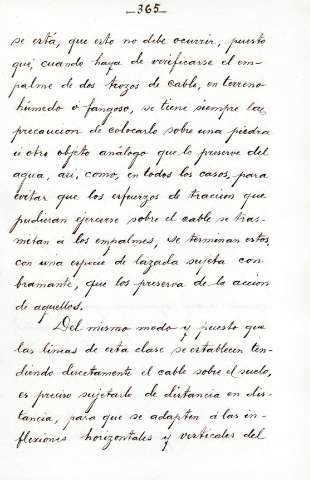 -365-
se está, que esto no debe ocurrir, puesto
que, cuando haya de verificarse el em-
palme de dos trozos de cable, en terreno
húmedo ó fangoso, se tiene siempre la
precaucion de colocarlo sobre una piedra
ú otro objeto análogo que lo preserve del
agua, asi, como, en todos los casos, para
evitar que los esfuerzos de traccion que
pudieran ejercerse sobre el cable se tras-
mitan á los empalmes, se terminan estos
con una especie de lazada sujeta con
bramante, que los preserva de la accion
de aquellos.
Del mismo modo y puesto que
las lineas de esta clase se establecen ten-
diendo directamente el cable sobre el suelo,
es preciso sujetarlo de distancia en dis-
tancia, para que se adapten á las in-
flexiones horizontales y verticales del